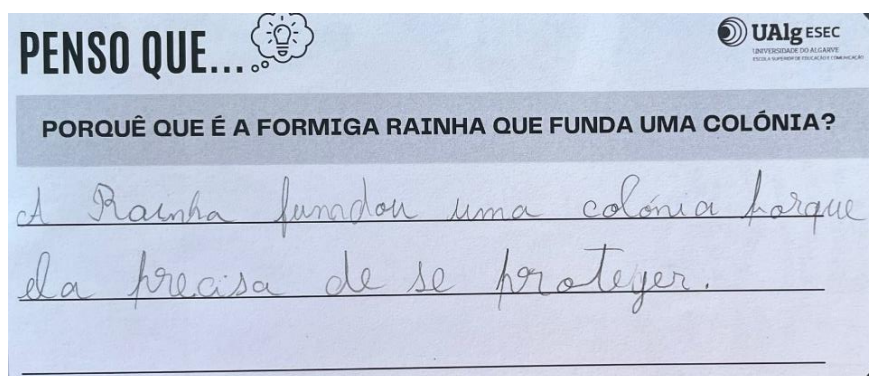 PENSO QUE...
UAlg ESEC
UNIVERSIDADE DO ALGARVE
ESCOLA SUPERIOR DE EDUCAÇÃO E COMUNICAÇÃO
PORQUÊ QUE É A FORMIGA RAINHA QUE FUNDA UMA COLÓNIA?
A Rainha funadou uma colónia porque
ela precisa de se proteger.